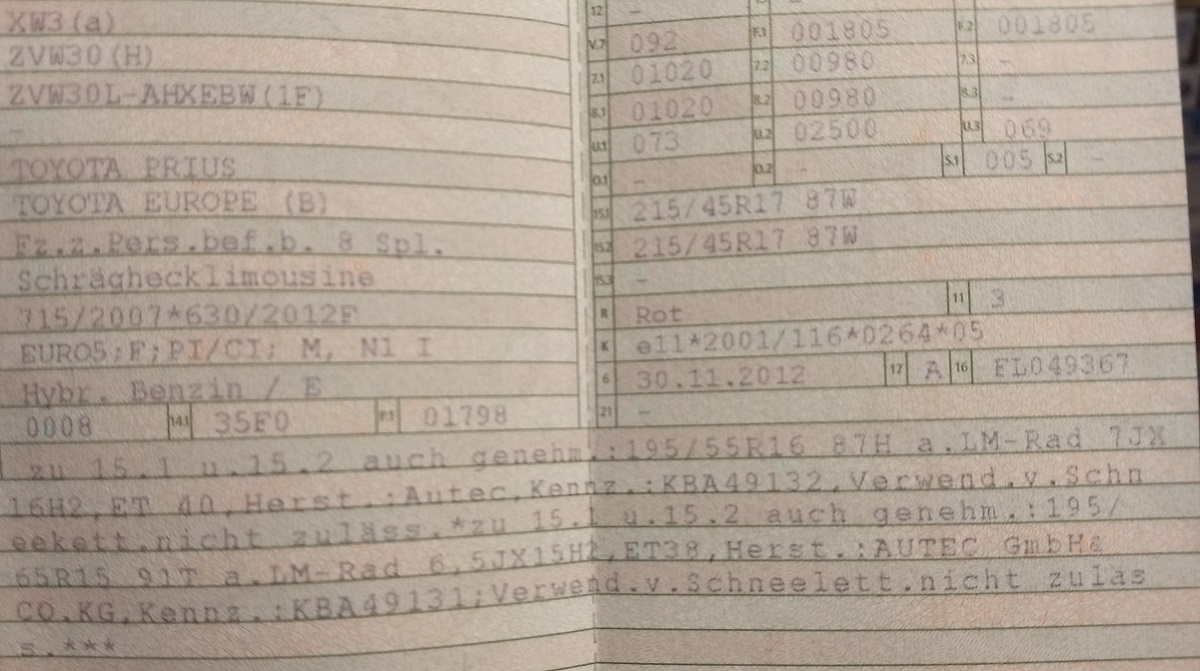 XW3(a)
ZVW30(H)
ZVW30L-AHXEBW(1F)
-
TOYOTA PRIUS
TOYOTA EUROPE (B)
Fz.z.Pers.bef.b. 8 Spl.
Schräghecklimousine
715/2007*630/2012F
EURO5;F;PI/CI; M, N1 I
Hybr. Benzin / E
0008 14.1 35F0 P.1 01798
12 -
V.7 092 F.1 001805 F.2 001805
7.1 01020 7.2 00980 7.3 -
8.1 01020 8.2 00980 8.3 -
U.1 073 U.2 02500 U.3 069
O.1 - O.2 - S.1 005 S.2 -
15.1 215/45R17 87W
15.2 215/45R17 87W
15.3 -
R Rot 11 3
K e11*2001/116*0264*05
6 30.11.2012 17 A 16 FL049367
21 -
zu 15.1 u.15.2 auch genehm.:195/55R16 87H a.LM-Rad 7JX
16H2,ET 40,Herst.:Autec,Kennz.:KBA49132,Verwend.v.Schn
eekett.nicht zuläss.*zu 15.1 u.15.2 auch genehm.:195/
65R15 91T a.LM-Rad 6,5JX15H2,ET38,Herst.:AUTEC GmbH&
CO.KG,Kennz.:KBA49131;Verwend.v.Schneelett.nicht zuläs
s.***